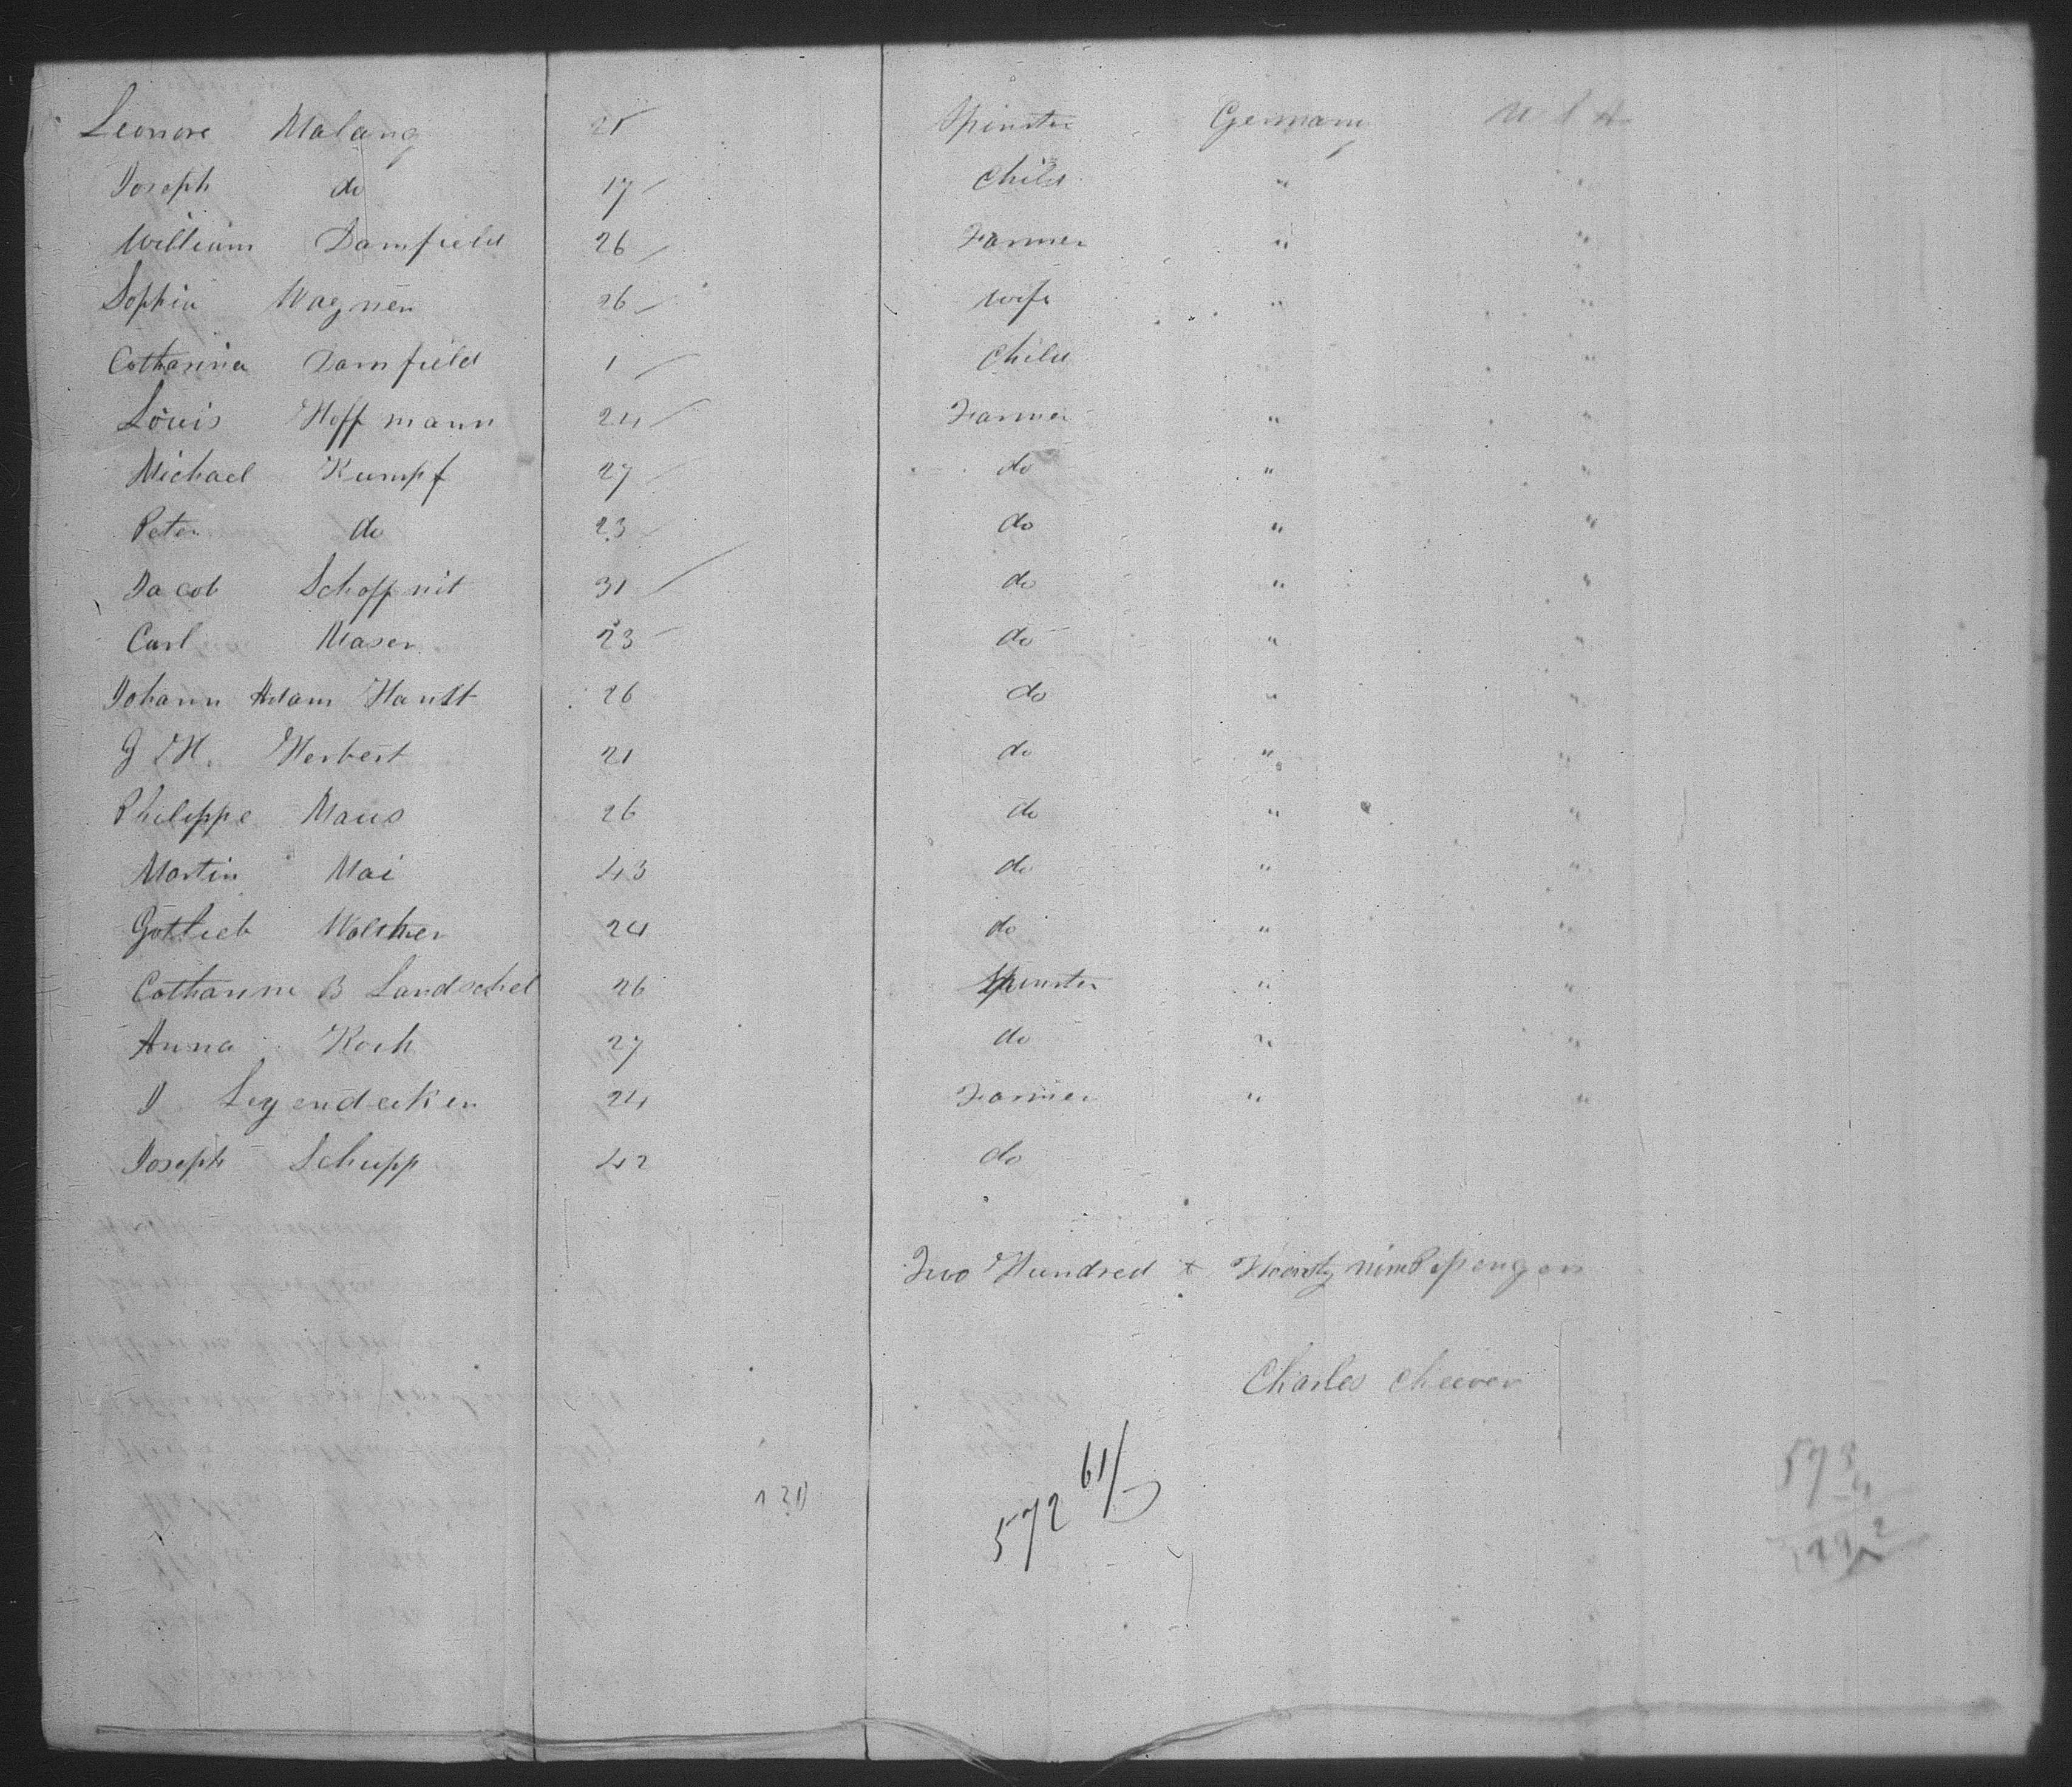 Leonore Malang 21 Spinster Germany U S A
Joseph do 17 Child " "
William Damfield 26 Farmer " "
Sophia Wagner 26 wife " "
Catharina Damfield 1 Child " "
Louis Hoffmann 24 Farmer " "
Michael Kumpf 27 do " "
Peter do 23 do " "
Jacob Schoffnit 31 do " "
Carl Maser 23 do " "
Johann Adam Hanst 26 do " "
G H. Herbert 21 do " "
Philippe Maus 26 do " "
Martin Mai 43 do " "
Gottlieb Walther 24 do " "
Catharine B Landschel 26 Spinster " "
Anna Koch 27 do " "
J Leyendecker 24 Farmer " "
Joseph Schupp 42 do
Two Hundred + Twenty nine
Charles Cheever
572 61/